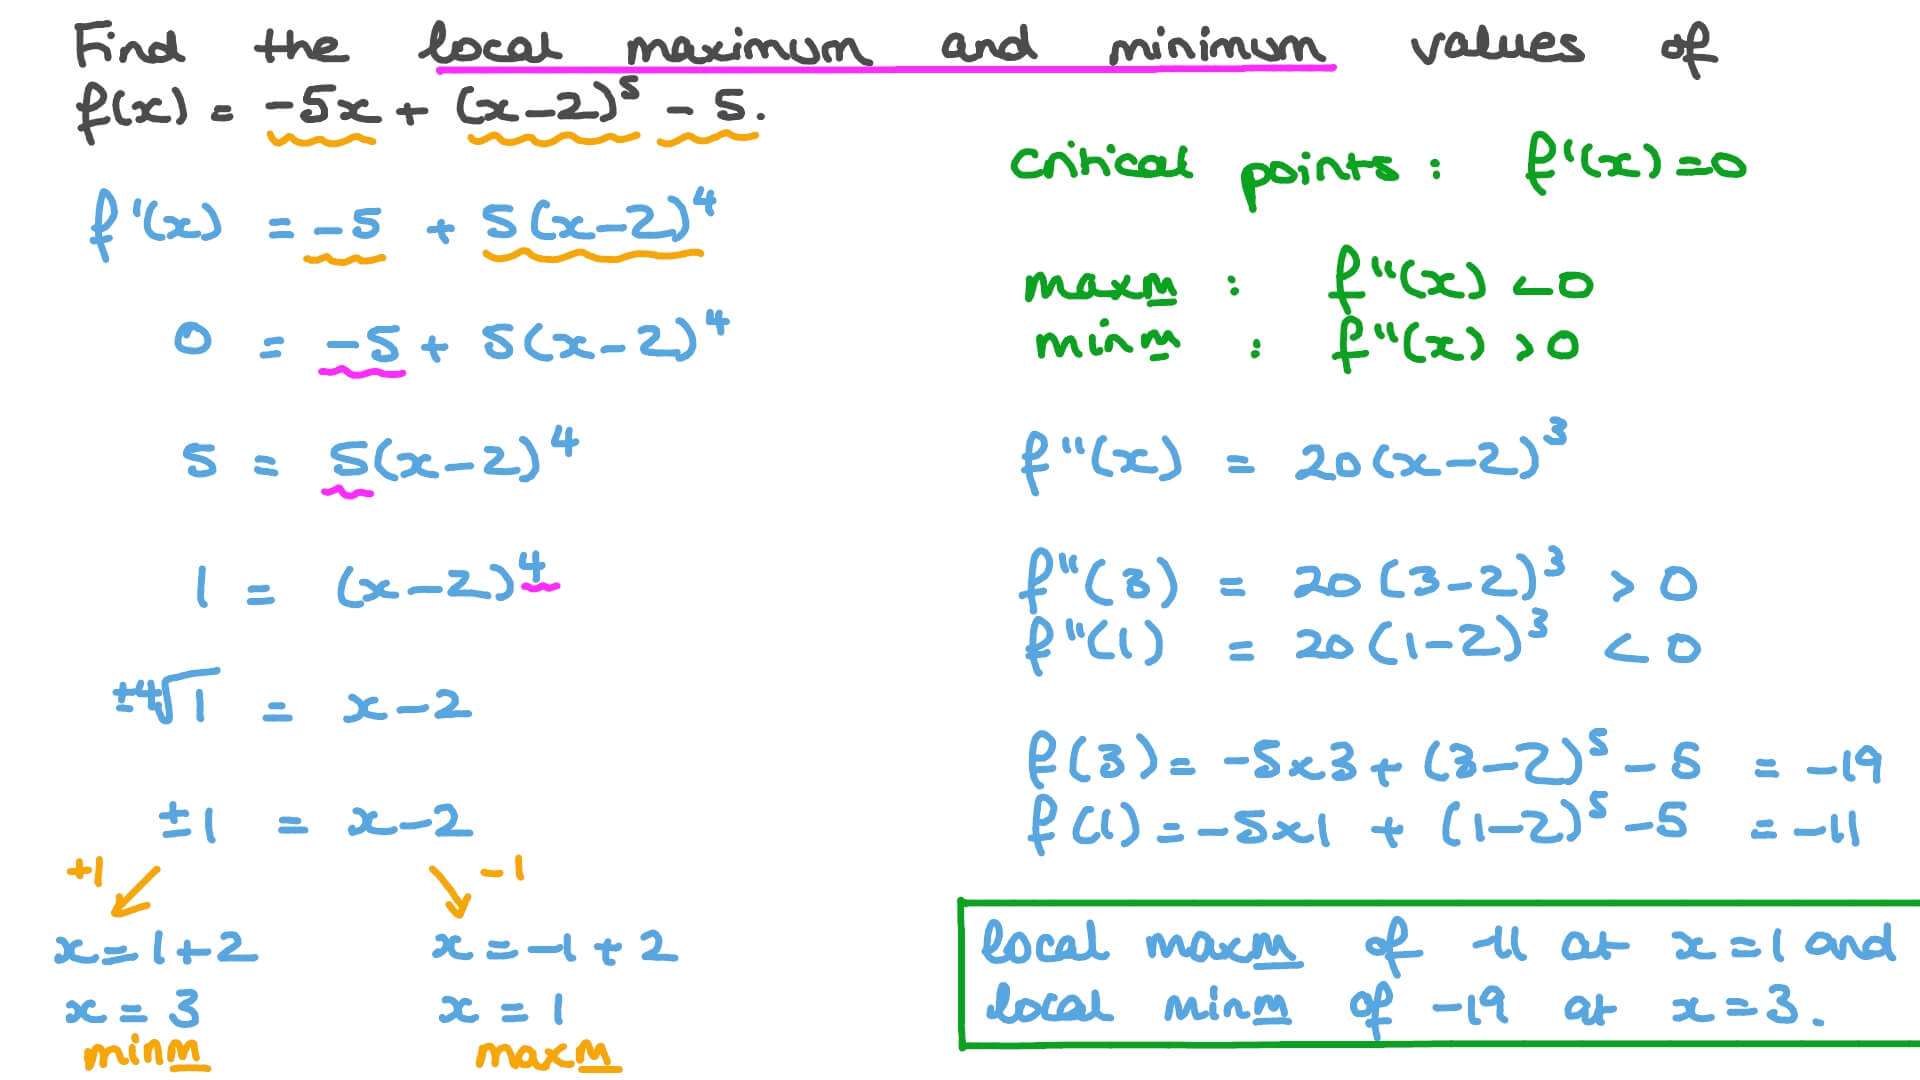 Find the local maximum and minimum values of
f(x) = -5x + (x-2)⁵ - 5.
f'(x) = -5 + 5(x-2)⁴
0 = -5 + 5(x-2)⁴
5 = 5(x-2)⁴
1 = (x-2)⁴
±⁴√1 = x-2
±1 = x-2
+1
-1
x=1+2
x=3
minm
x=-1+2
x=1
maxm
critical points: f'(x)=0
maxm : f''(x)<0
minm : f''(x)>0
f''(x) = 20(x-2)³
f''(3) = 20(3-2)³ > 0
f''(1) = 20(1-2)³ < 0
f(3) = -5x3 + (3-2)⁵ - 5 = -19
f(1) = -5x1 + (1-2)⁵ - 5 = -11
local maxm of -11 at x=1 and
local minm of -19 at x=3.